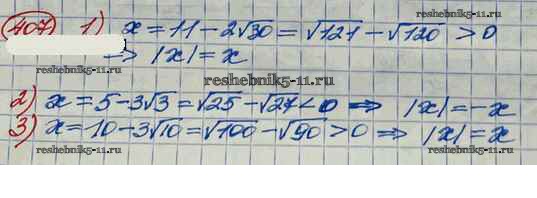 407 1) x = 11 - 2√30 = √121 - √120 > 0
reshebnik5-11.ru
⇒ |x| = x
reshebnik5-11.ru
reshebnik5-11.ru
reshebnik5-11.ru
2) x = 5 - 3√3 = √25 - √27 < 0 ⇒ |x| = -x
3) x = 10 - 3√10 = √100 - √90 > 0 ⇒ |x| = x
reshebnik5-11.ru
reshebnik5-11.ru